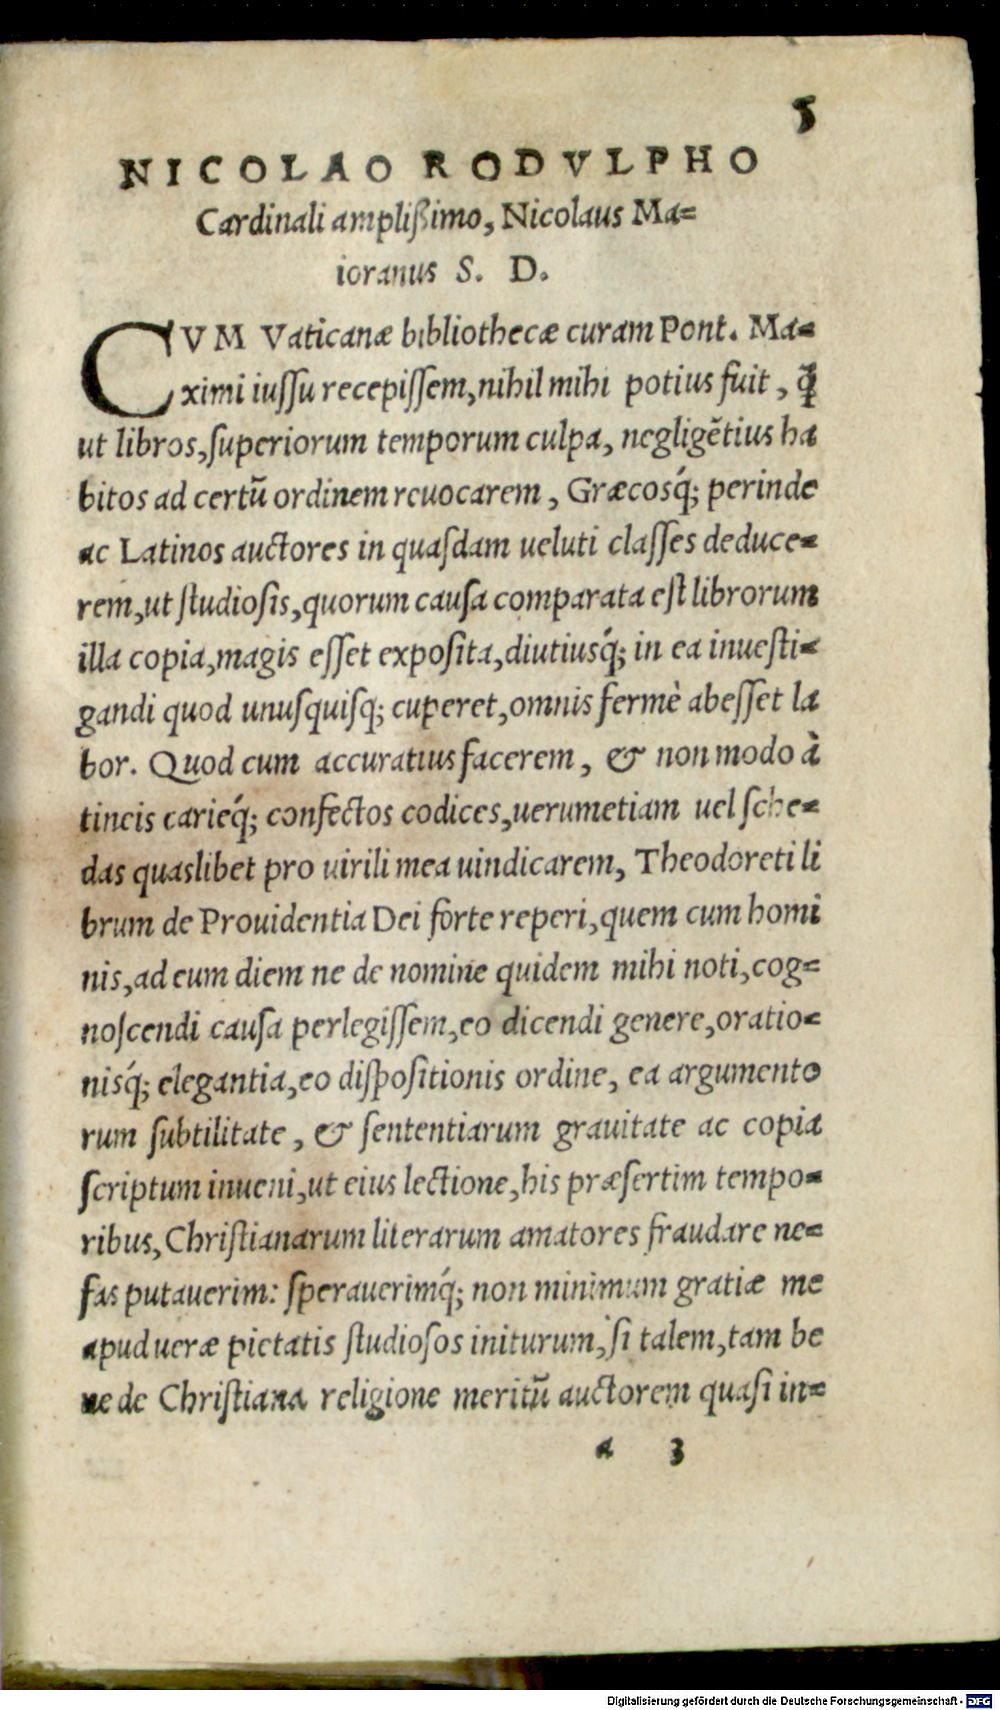 5
NICOLAO RODVLPHO
Cardinali amplißimo, Nicolaus Ma=
ioranus S. D.
CVM Vaticanæ bibliothecæ curam Pont. Ma=
ximi iussu recepissem, nihil mihi potius fuit, q̃
ut libros, superiorum temporum culpa, negligẽtius ha
bitos ad certũ ordinem reuocarem, Græcosq́; perinde
ac Latinos auctores in quasdam ueluti classes deduce=
rem, ut studiosis, quorum causa comparata est librorum
illa copia, magis esset exposita, diutiusq́; in ea inuesti=
gandi quod unusquisq; cuperet, omnis fermè abesset la
bor. Quod cum accuratius facerem, & non modo à
tineis carieq́; confectos codices, uerumetiam uel sche=
das quaslibet pro uirili mea uindicarem, Theodoreti li
brum de Prouidentia Dei forte reperi, quem cum homi
nis, ad eum diem ne de nomine quidem mihi noti, cog=
noscendi causa perlegissem, eo dicendi genere, oratio=
nisq́; elegantia, eo dispositionis ordine, ea argumento
rum subtilitate, & sententiarum grauitate ac copia
scriptum inueni, ut eius lectione, his præsertim tempo=
ribus, Christianarum literarum amatores fraudare ne=
fas putauerim: sperauerimq́; non minimum gratiæ me
apud ueræ pietatis studiosos initurum, si talem, tam be
ne de Christiana religione meritũ auctorem quasi in=
a 3
Digitalisierung gefördert durch die Deutsche Forschungsgemeinschaft - DFG